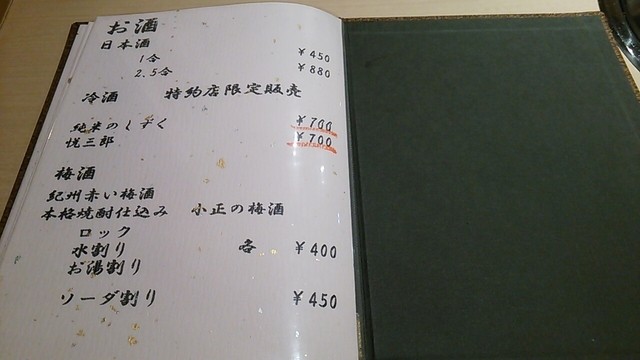 お酒
日本酒
1合 ￥450
2.5合 ￥880
冷酒 特約店限定販売
純米のしずく ￥700
悦三郎 ￥700
梅酒
紀州赤い梅酒
本格焼酎仕込み 小正の梅酒
ロック
水割り 各 ￥400
お湯割り
ソーダ割り ￥450